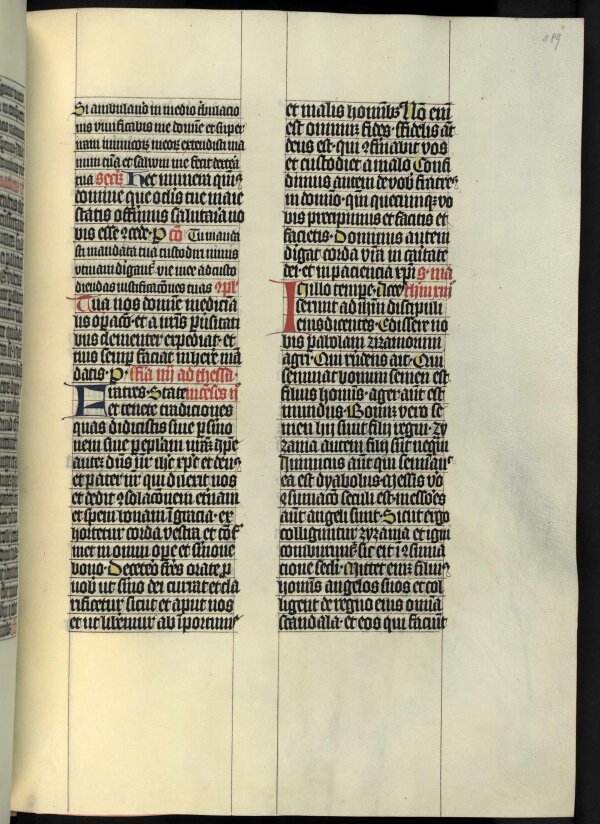 189
Si ambulauero in medio tribulacio
nis viuificabis me domine et super
iram inimicorum meorum extendisti ma
num tuam et saluum me fecit dextera
tua Secreta Hec munera quesumus
domine que oculis tue maie
statis offerimus salutaria no
bis esse concede · p Co Tu manda
sti mandata tua custodiri nimis
vtinam dirigantur vie mee ad custo
diendas iustificationes tuas 
Tua nos domine medicina
lis operatio et a nostris peruersitati
bus clementer expediat · et
tuis semper faciat inherere man
datis · p · feria iiij ad thessa
Fratres · State lonicenses ij
et tenete tradiciones
quas didicistis siue per sermo
nem siue per epistolam nostram ipse
autem dominus noster ihesus christus et deus
et pater noster qui dilexit nos
et dedit consolacionem eternam
et spem bonam in gratia · ex
hortetur corda vestra et confir
met in omni opere et sermone
bono · De cetero fratres orate pro
nobis ut sermo dei currat et cla
rificetur sicut et aput uos
et ut liberemur ab importunis
et malis hominibus Non enim
est omnium fides · fidelis autem
deus est · qui confirmabit vos
et custodiet a malo Confi
dimus autem de vobis fratres
in domino · quoniam quecumque vo
bis precipimus et facitis et
facietis · Dominus autem
dirigat corda vestra in caritate
dei · et in paciencia christi s · ma
In illo tempore · Acce theum xiij
sserunt ad ihesum discipuli
eius dicentes · Edissere no
bis parabolam zizaniorum
agri · Qui respondens ait · Qui
seminat bonum semen est
filius hominis · ager autem est
mundus · Bonum vero se
men hij sunt filij regni · zy
zania autem filij sunt nequam
Inimicus autem qui seminauit
ea est dyabolus · Messis vero
consumacio seculi est · messores
autem angeli sunt · Sicut ergo
colliguntur zyzania et igni
comburuntur · sic erit in consuma
cione seculi · Mittet enim filius
hominis angelos suos et col
ligent de regno eius omnia
scandala · et eos qui faciunt